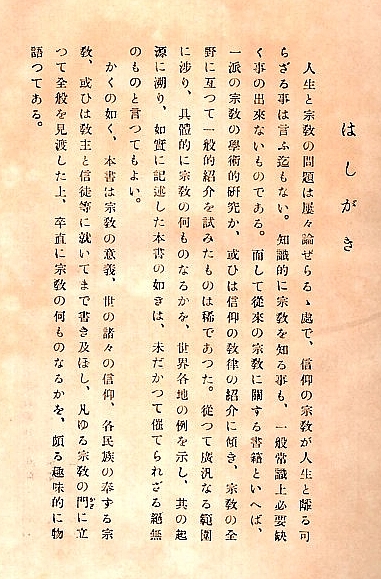 はしがき
人生と宗教の問題は屡々論ぜらるゝ處で、信仰の宗教が人生と離る可
らざる事は言ふ迄もない。知識的に宗教を知る事も、一般常識上必要缺
く事の出來ないものである。而して從來の宗教に關する書籍といへば、
一派の宗教の學術的研究か、或ひは信仰の教律の紹介に傾き、宗教の全
野に亙つて一般的紹介を試みたものは稀であつた。從つて廣汎なる範圍
に渉り、具體的に宗教の何ものなるかを、世界各地の例を示し、其の起
源に溯り、如實に記述した本書の如きは、未だかつて催てられざる絕無
のものと言つてもよい。
かくの如く、本書は宗教の意義、世の諸々の信仰、各民族の奉ずる宗
教、或ひは教主と信徒等に就いてまで書き及ほし、凡ゆる宗教の門に立
つて全般を見渡した上、卒直に宗教の何ものなるかを、頗る趣味的に物
語つてある。